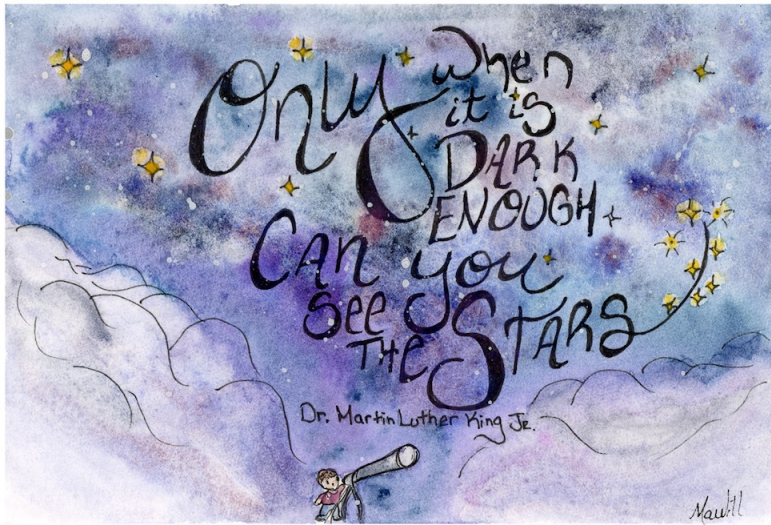 Only when
it is
DARK
ENOUGH
CAN you
See
THE STARS
Dr. Martin Luther King Jr.